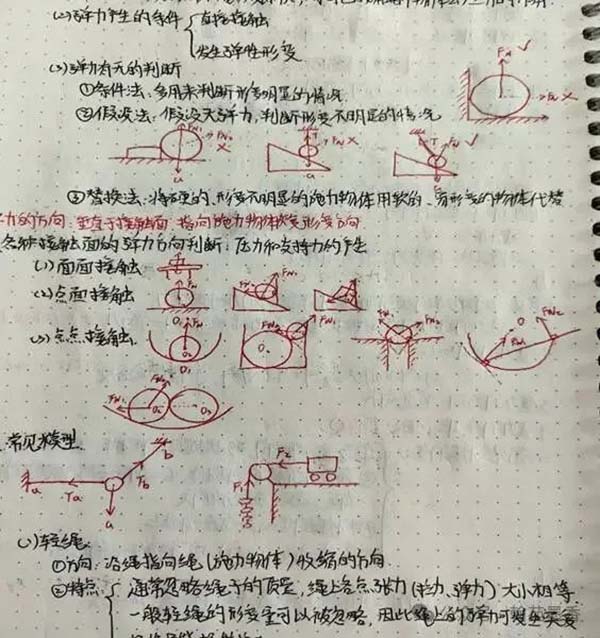 (2)弹力产生的条件 直接接触
发生弹性形变
(3)弹力有无的判断
①条件法:多用来判断形变明显的情况.
②假设法:假设无弹力,判断形变不明显的情况
③替换法:将硬的、形变不明显的施力物体用软的、易形变的物体代替
力的方向:垂直于接触面 指向施力物体恢复形变方向
各种接触面的弹力方向判断:压力和支持力的产生
(1)面面接触
(2)点面接触
(3)点点接触
常见模型
a Ta G Tb b
F1 F2
(1)轻绳
①方向:沿绳指向绳(施力物体)收缩的方向
②特点 通常忽略绳子的质量,绳上各点张力(拉力、弹力)大小相等
一般轻绳的形变量可以被忽略,因此绳上的弹力可发生突变